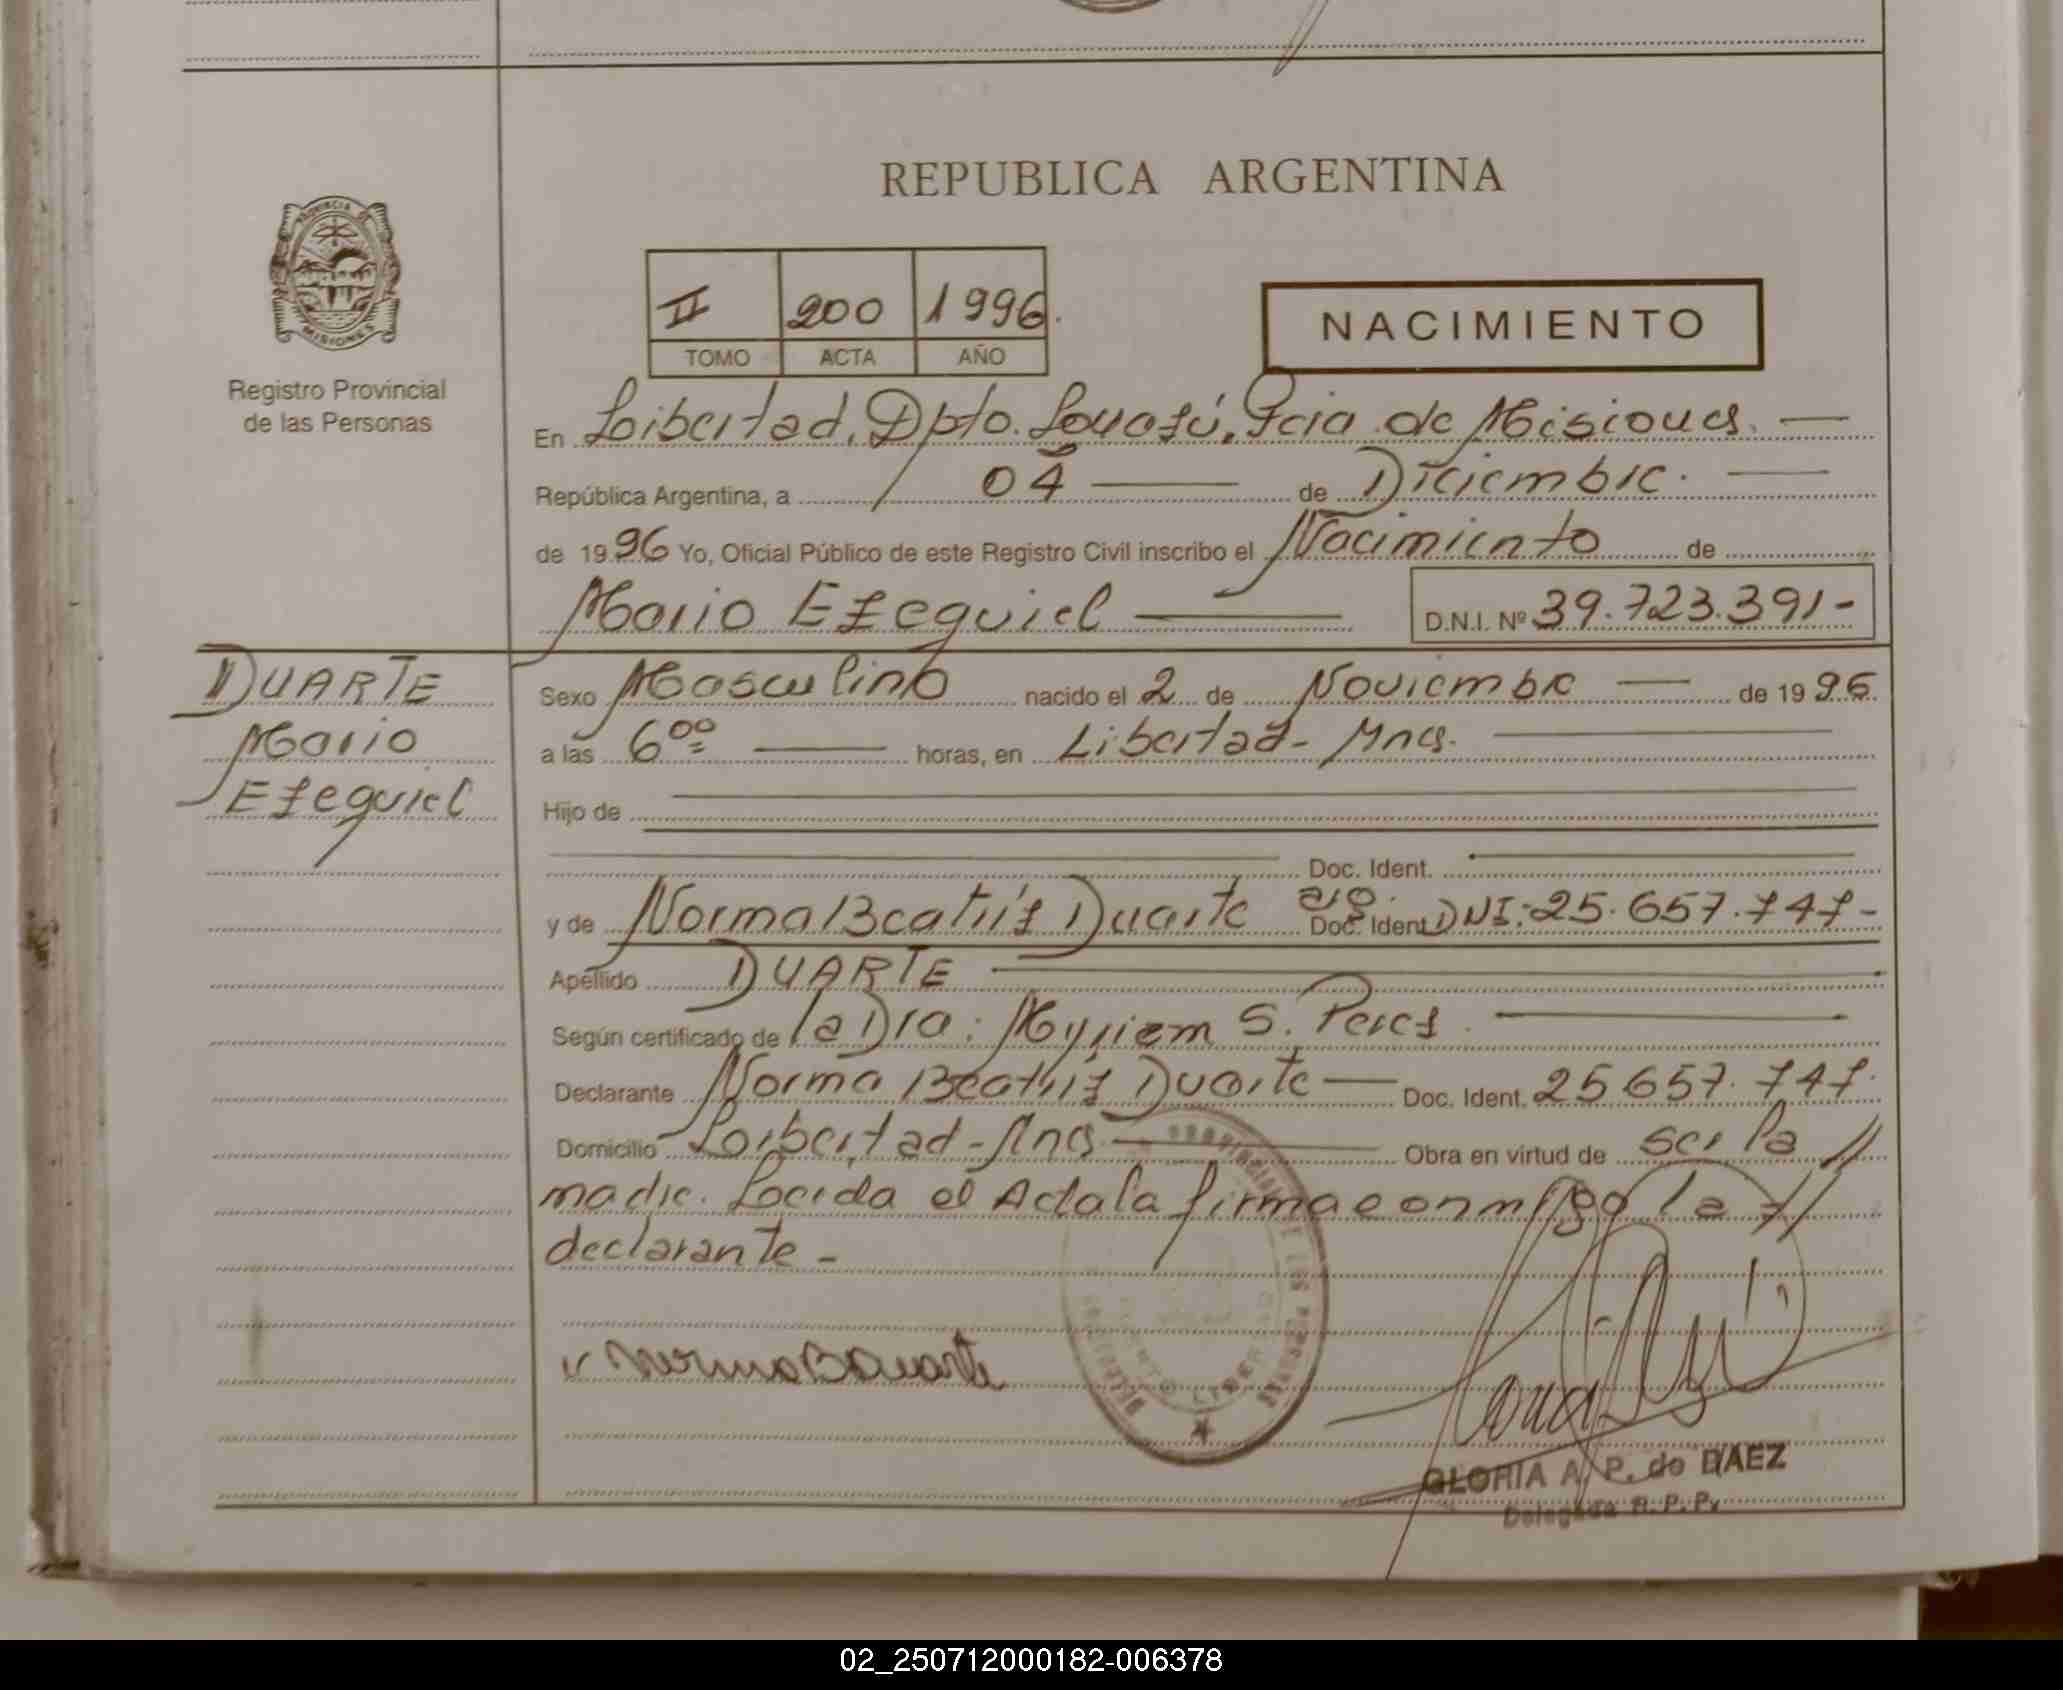 PROVINCIA DE
MISIONES
Registro Provincial
de las Personas
REPUBLICA ARGENTINA
II 200 1996.
TOMO ACTA AÑO
NACIMIENTO
En Libertad, Dpto. Iguazú, Pcia de Misiones. —
República Argentina, a 04 — de Diciembre. —
de 1996 Yo, Oficial Público de este Registro Civil inscribo el Nacimiento de
Mario Ezequiel — D.N.I. Nº 39.723.391-
DUARTE
Mario
Ezequiel
Sexo Masculino nacido el 2 de Noviembre — de 1996
a las 6 00 — horas, en Libertad - Mnes. —
Hijo de
Doc. Ident.
y de Norma Beatríz Duarte arg. Doc. Ident DNI: 25.657.747-
Apellido DUARTE —
Según certificado de la Dra: Myriem S. Peres. —
Declarante Norma Beatríz Duarte — Doc. Ident. 25.657.747.
Domicilio Libertad - Mnes — Obra en virtud de ser la //
madre. Leeida el Acta la firma conmigo la //
declarante -
Norma B Duarte
LIBERTAD
GLORIA A. P. de DAEZ
Delegada R. P. P.
02_250712000182-006378